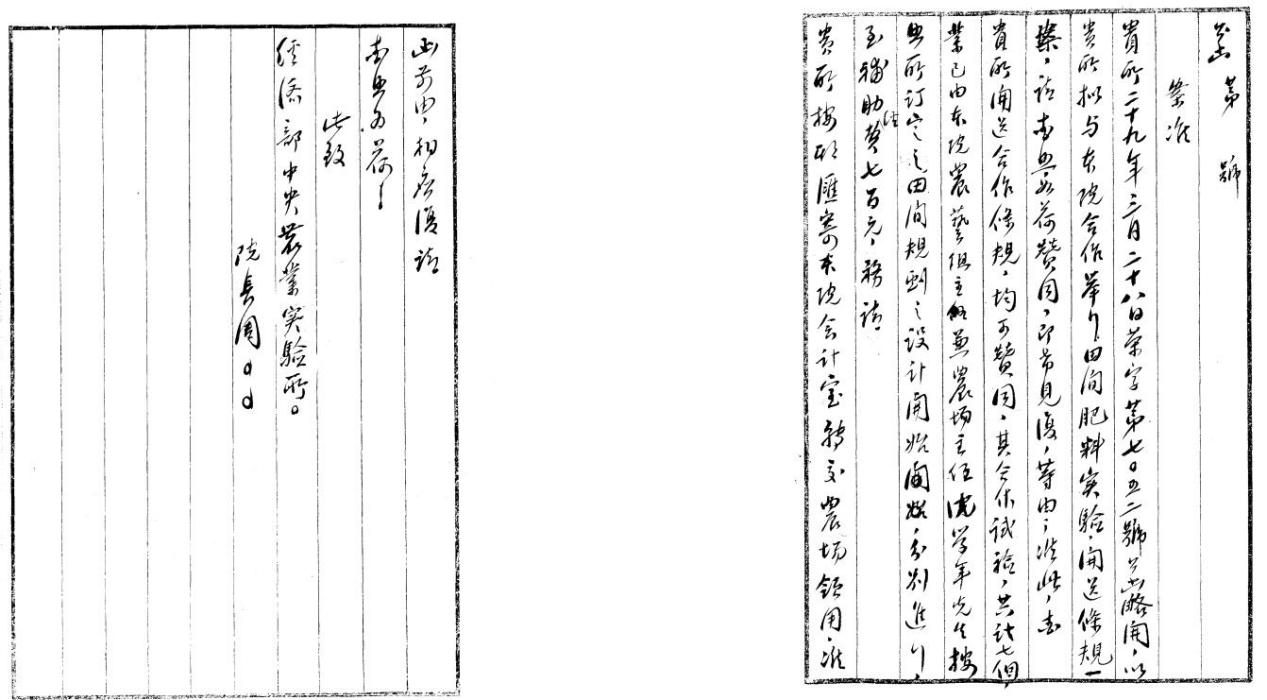 公函 第 號
案准
貴所二十九年三月二十八日業字第七〇五二號公函略開，以
貴所拟与本院合作举行田间肥料实验，開送條規一
案，請查照，如荷贊同，即希見復，等由；准此，查
貴所開送合作條規，均可贊同，其合作試验，共計七個，
業已由本院農藝组主任兼農场主任沈学年先生按
照所訂定之田间規划之設計開始，分别進行，
至補助費七百元，務請
貴所按期匯寄本院会计室轉交農场領用，准
函前由，相應復請
查照为荷！
此致
經濟部中央農業实驗所。
院長周〇〇